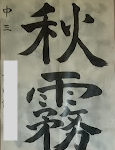 秋霧
中三